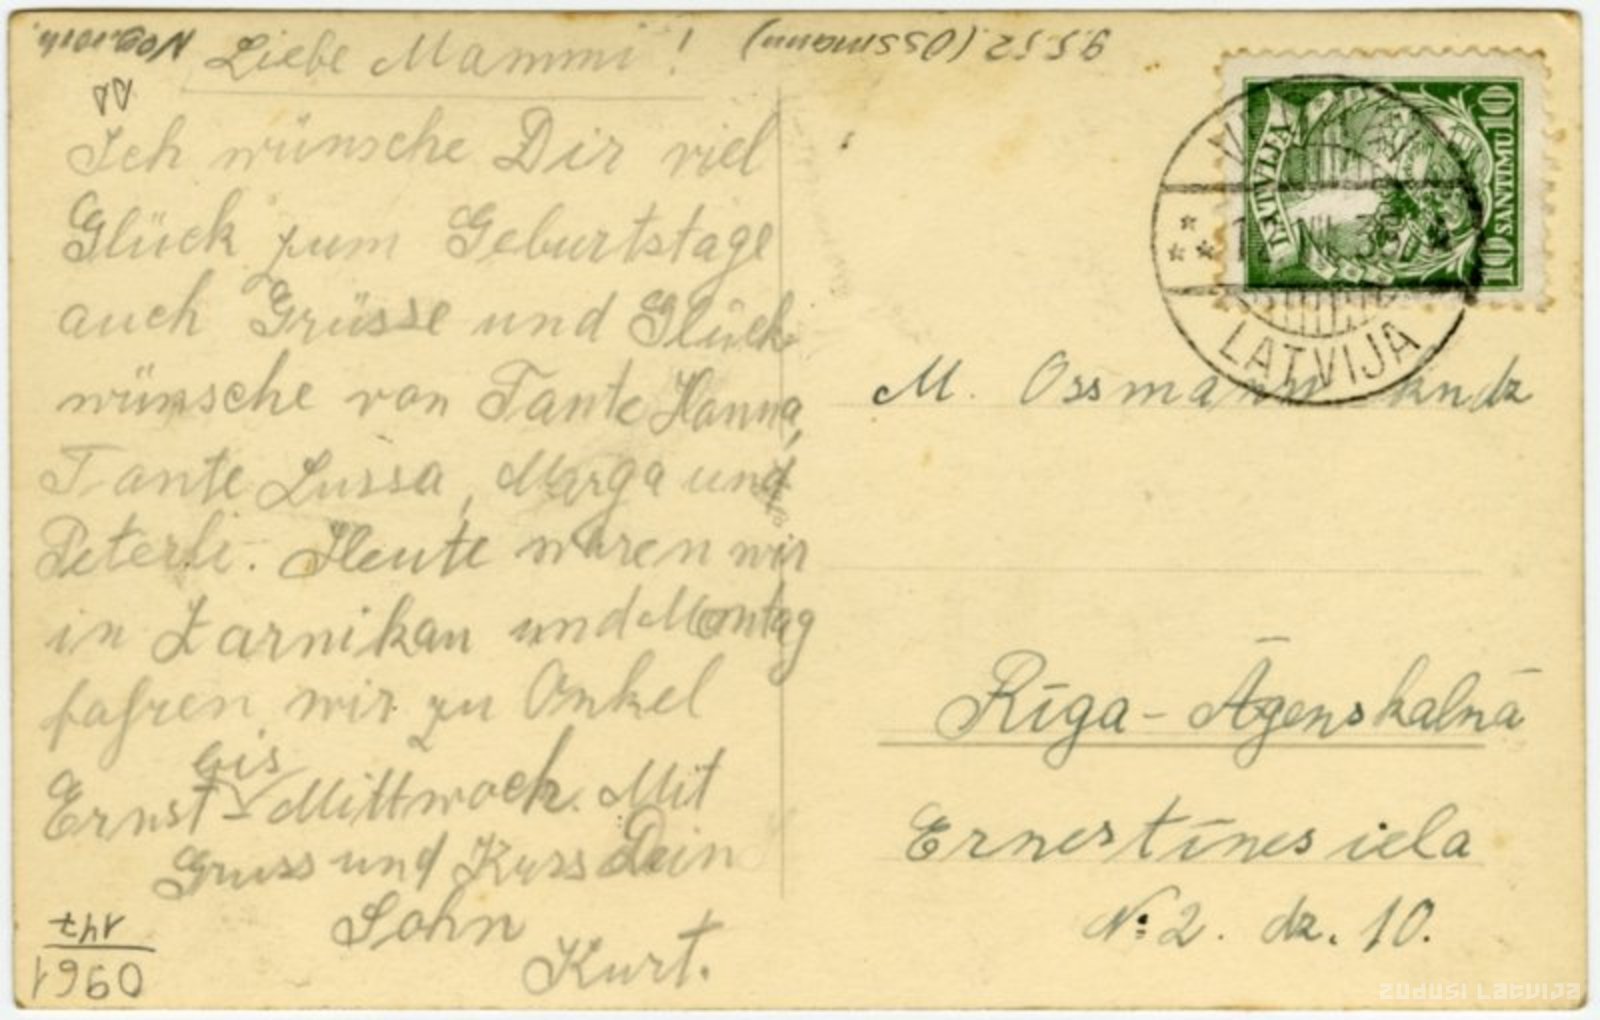 Liebe Mammi!
9.5.52. (Ossmann)
Ich wünsche Dir viel
Glück zum Geburtstage
auch Grüsse und Glück-
wünsche von Tante Hanna,
Tante Lussa, Marga und
Peterli. Heute waren wir
in Zarnikau und Montag
fahren wir zu Onkel
bis
Ernst Mittwoch. Mit
Gruss und Kuss Dein
Sohn
Kurt.
147
1960
LATVIJA
10 SANTIMU 10
LATVIJA
M. Ossmann kndz
Rīga - Āgenskalnā
Ernestīnes iela
№ 2. dz. 10.
zudusi latvija